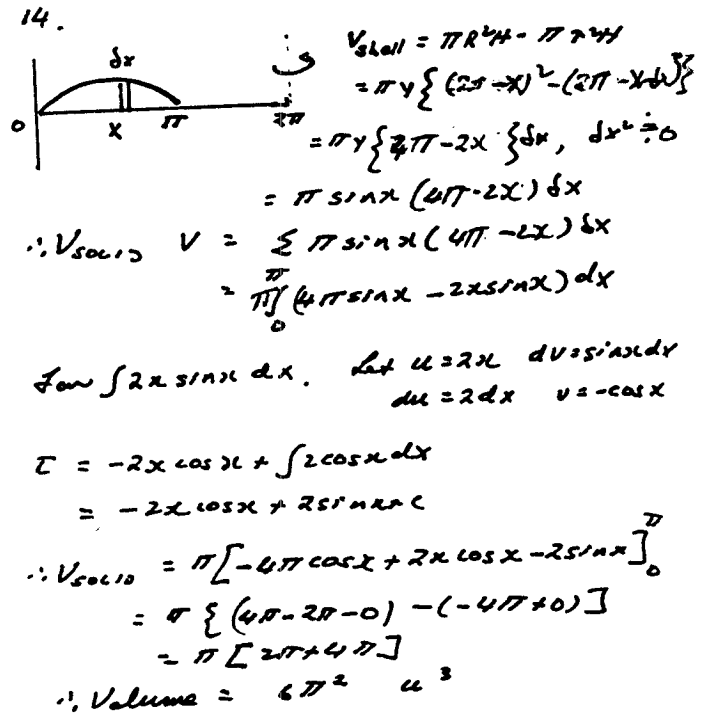 14.
δx
V shell = πR²H - πr²H
= πy{(2π-x)² - (2π-x-δx)²}
O x π 2π
= πy{4π-2x}δx, δx² ≑ 0
= π sinx (4π-2x) δx
∴ V SOLID V = Σ π sinx (4π-2x) δx
= π∫₀^π (4π sinx - 2x sinx) dx
For ∫2x sinx dx. Let u=2x dv=sinx dx
du = 2dx v = -cosx
I = -2x cosx + ∫2cosx dx
= -2x cosx + 2sinx + c
∴ V SOLID = π[-4π cosx + 2x cosx - 2sinx]₀^π
= π {(4π-2π-0) - (-4π+0)]
= π [2π+4π]
∴ Volume = 6π² u³